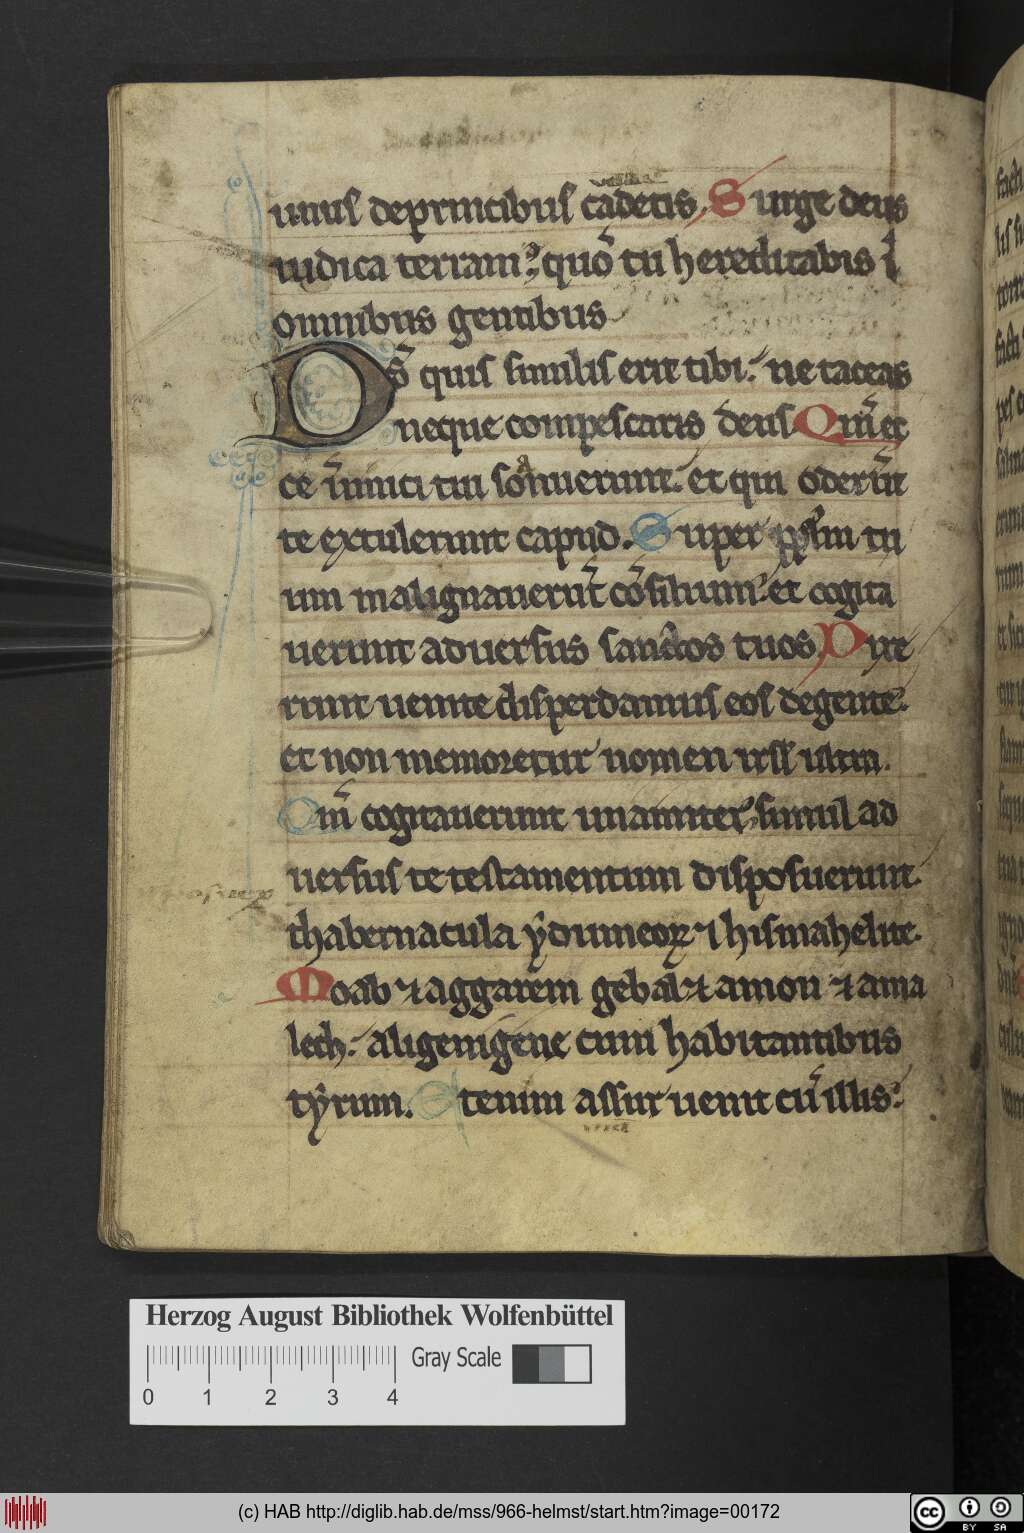 unus de principibus cadetis. Surge deus
iudica terram: quō tu hereditabis ī
omnibus gentibus
Ds̄ quis similis erit tibi: ne taceas
neque compescaris deus Qm̄ ec
ce inimici tui sonuerunt: et qui oderūt
te extulerunt capud. Super pplm̄ tu
um malignauerūt cōsilium: et cogita
uerunt aduersus sanctos tuos. Dixe
runt uenite disperdamus eos de gente:
et non memoretur nomen isrl̄ ultra.
Qm̄ cogitauerunt unanimiter: simul ad
uersus te testamentum disposuerunt.
thabernacula ydumeoꝝ ⁊ hismahelite.
Moab ⁊ aggareni gebal ⁊ amon ⁊ ama
lech: aligenigene cum habitantibus
tyrum. Etenim assur uenit cū illis:
Herzog August Bibliothek Wolfenbüttel
Gray Scale
0 1 2 3 4
(c) HAB http://diglib.hab.de/mss/966-helmst/start.htm?image=00172
cc BY SA